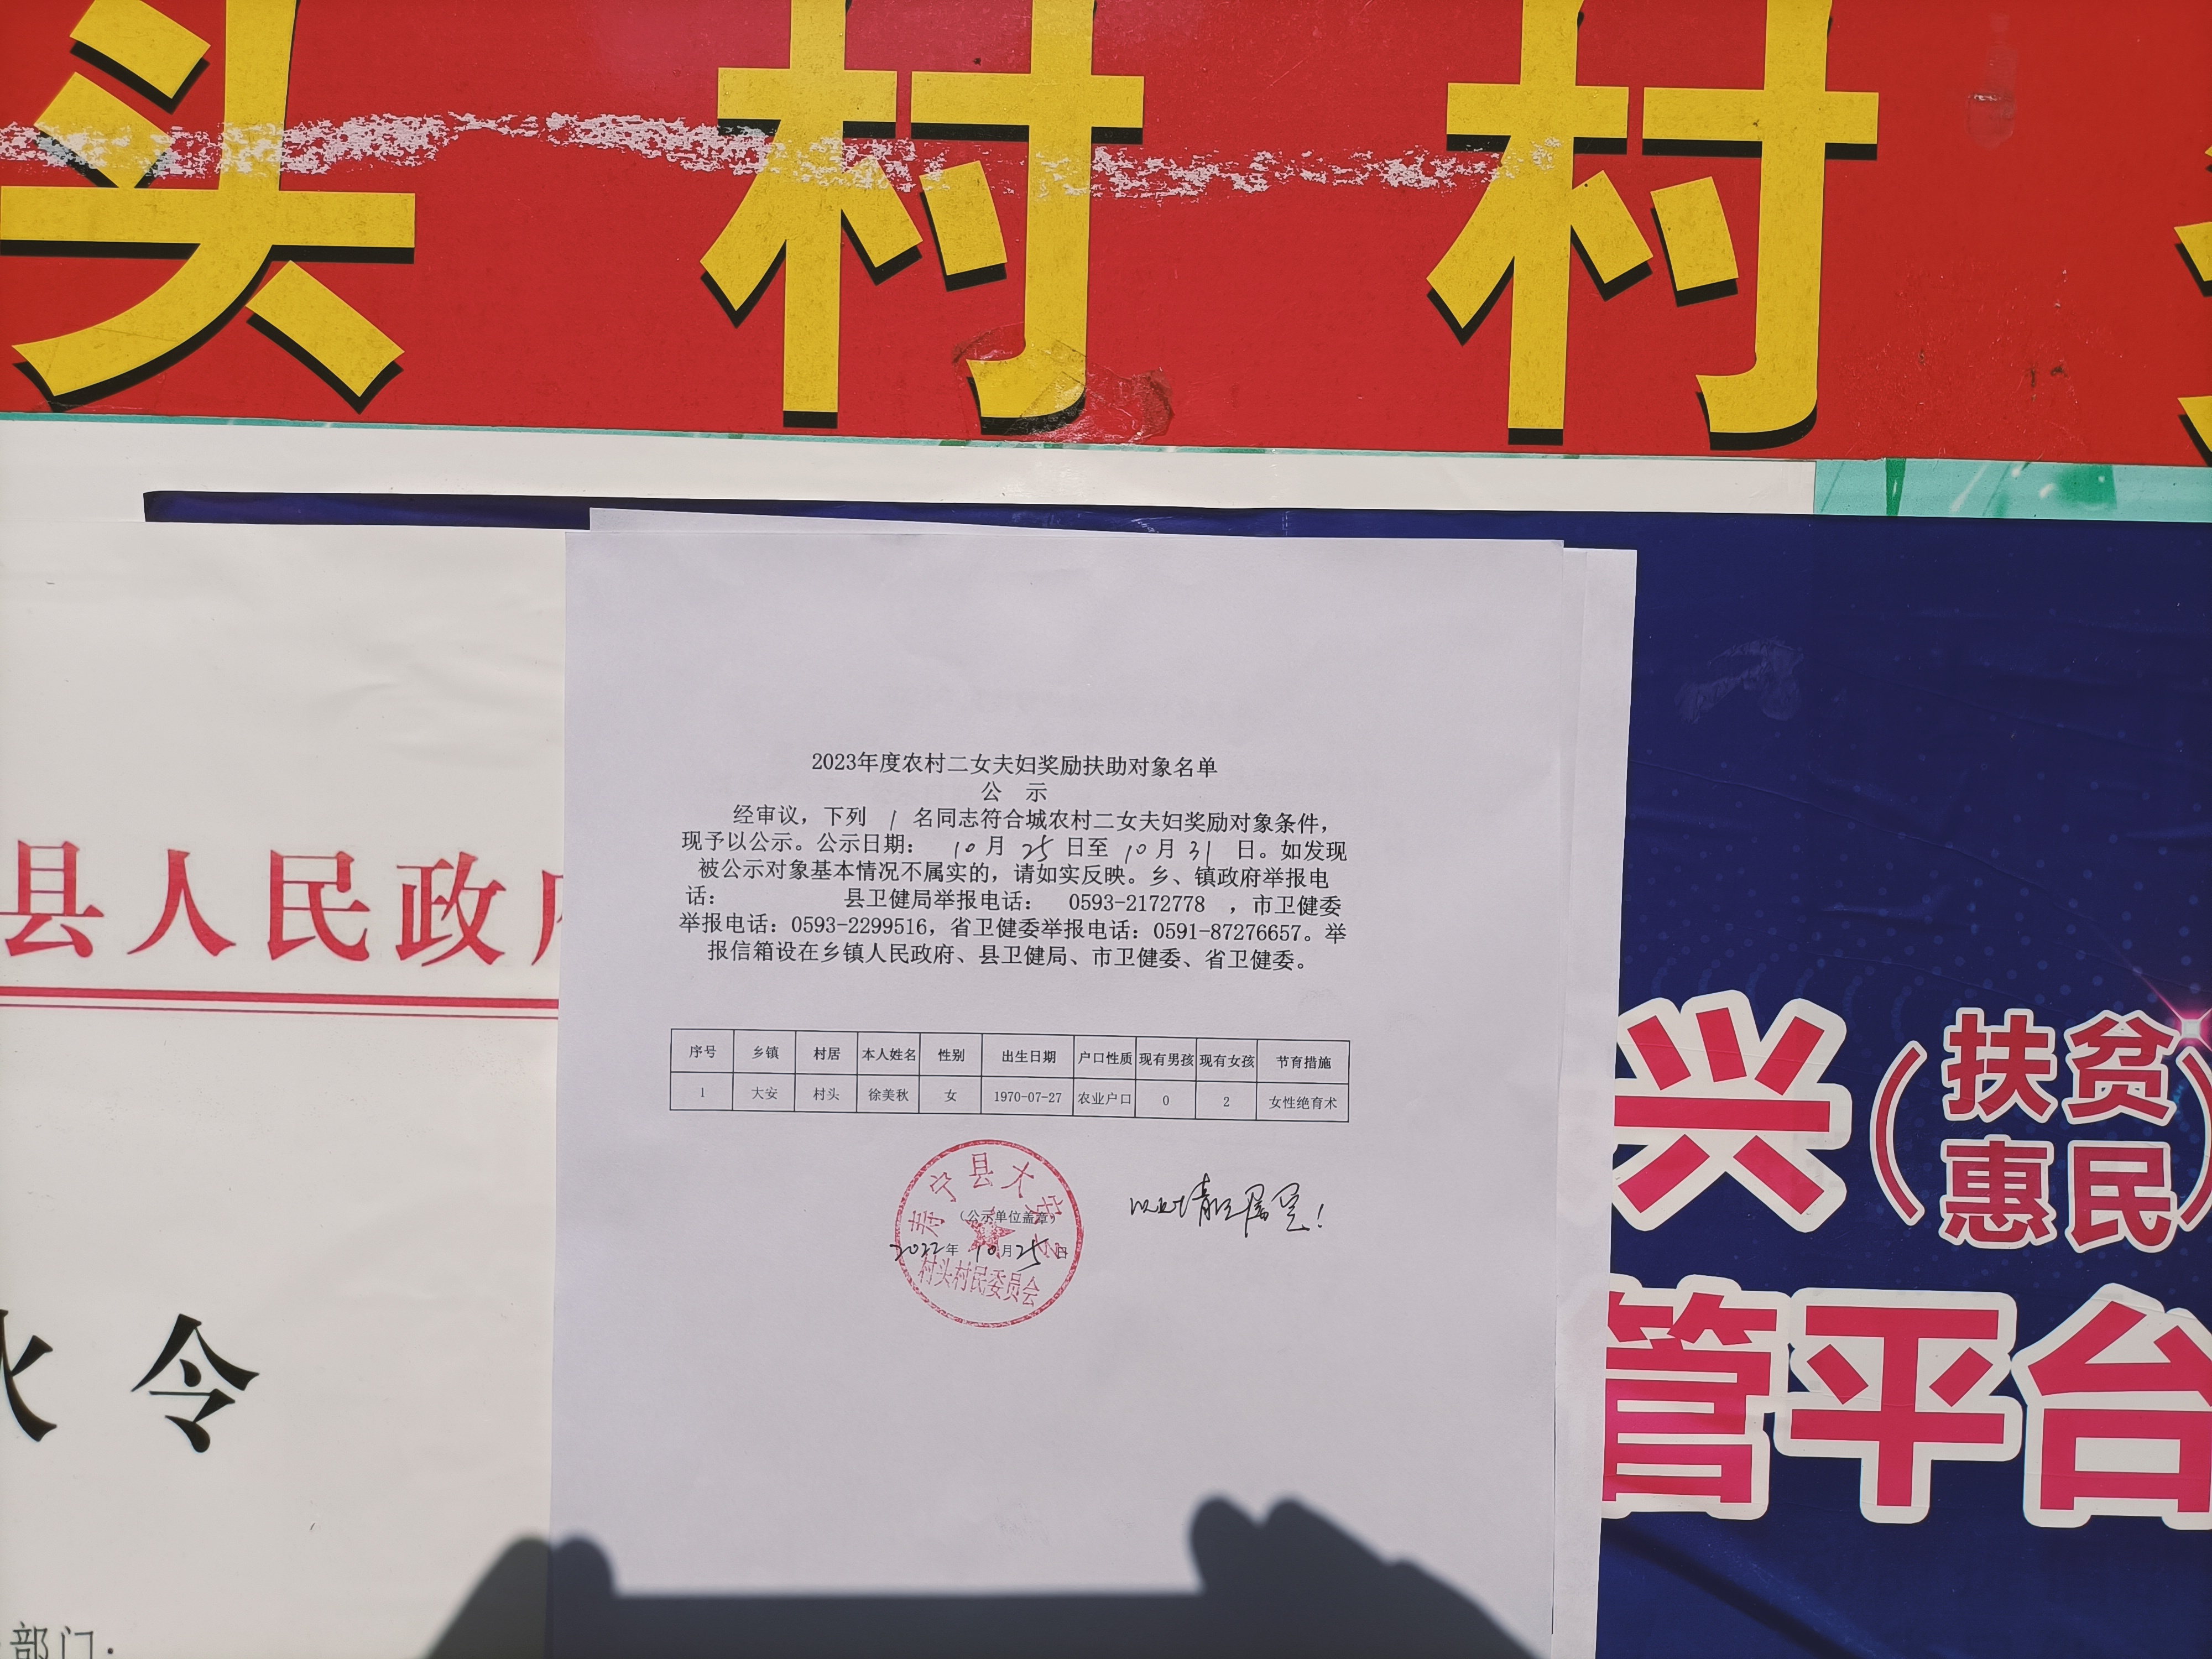 头村村
2023年度农村二女夫妇奖励扶助对象名单
公 示
经审议，下列 1 名同志符合城农村二女夫妇奖励对象条件，
现予以公示。公示日期： 10月 25 日至 10月 31 日。如发现
被公示对象基本情况不属实的，请如实反映。乡、镇政府举报电
话： 县卫健局举报电话： 0593-2172778 ，市卫健委
举报电话：0593-2299516，省卫健委举报电话：0591-87276657。举
报信箱设在乡镇人民政府、县卫健局、市卫健委、省卫健委。
序号 乡镇 村居 本人姓名 性别 出生日期 户口性质 现有男孩 现有女孩 节育措施
1 大安 村头 徐美秋 女 1970-07-27 农业户口 0 2 女性绝育术
寿宁县大安乡
（公示单位盖章）
2022年 10月25日
村头村民委员会
县人民政府
火令
部门：
兴（扶贫
惠民）
管平台